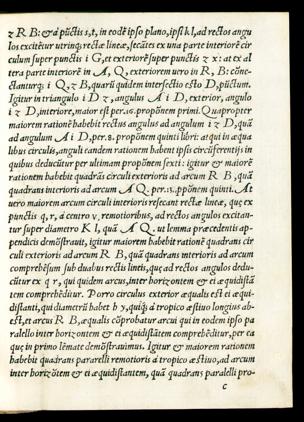 z R B: & à pūctis s, t, in eodē ipso plano, ipsi k l, ad rectos angu
los excitētur utrinq; rectæ lineæ, secātes ex una parte interiorē cir
culum super punctis i G, et exteriorē super punctis z x: at ex al
tera parte interiorē in A, Q, exteriorem uero in R, B: cōne-
ctanturq; i Q, z B, quarū quidem intersectio esto D, pūctum.
Igitur in triangulo i D z, angulus A i D, exterior, angulo
i z D, interiore, maior est per .16. propōnem primi. Quapropter
maiorem rationē habebit rectus angulus ad angulum i z D, quā
ad angulum A i D, per .8. propōnem quinti libri: at qui in æqua
libus circulis, anguli eandem rationem habent ipsis circūferentijs in
quibus deducūtur per ultimam propōnem sexti: igitur & maiorē
rationem habebit quadrās circuli exterioris ad arcum R B, quā
quadrans interioris ad arcum A Q. per .13. ppōnem quinti. At
uero maiorem arcum circuli interioris resecant rectæ lineæ, quæ ex
punctis q, r, à centro v, remotioribus, ad rectos angulos excitan-
tur super diametro K l, quā A Q. ut lemma præcedentis ap-
pendicis demōstrauit, igitur maiorem habebit rationē quadrans cir
culi exterioris ad arcum R B, quā quadrans interioris ad arcum
comprehēsum sub duabus rectis lineis, quæ ad rectos angulos dedu-
cūtur ex q r, qui quidem arcus, inter horizontem & ei æquidistā
tem comprehēditur. Porro circulus exterior æqualis est ei æqui-
distanti, qui diametrū habet h y, quiq; à tropico æstiuo longius ab-
est, et arcus R B, æqualis cōprobatur arcui qui in eodem ipso pa
ralelo inter horizontem & ei æquidistātem comprehēditur, per ea
quæ in primo lēmate demōstrauimus. Igitur & maiorem rationem
habebit quadrans pararelli remotioris à tropico æstiuo, ad arcum
inter horizōtem & ei æquidistantem, quā quadrans paralelli pro-
c